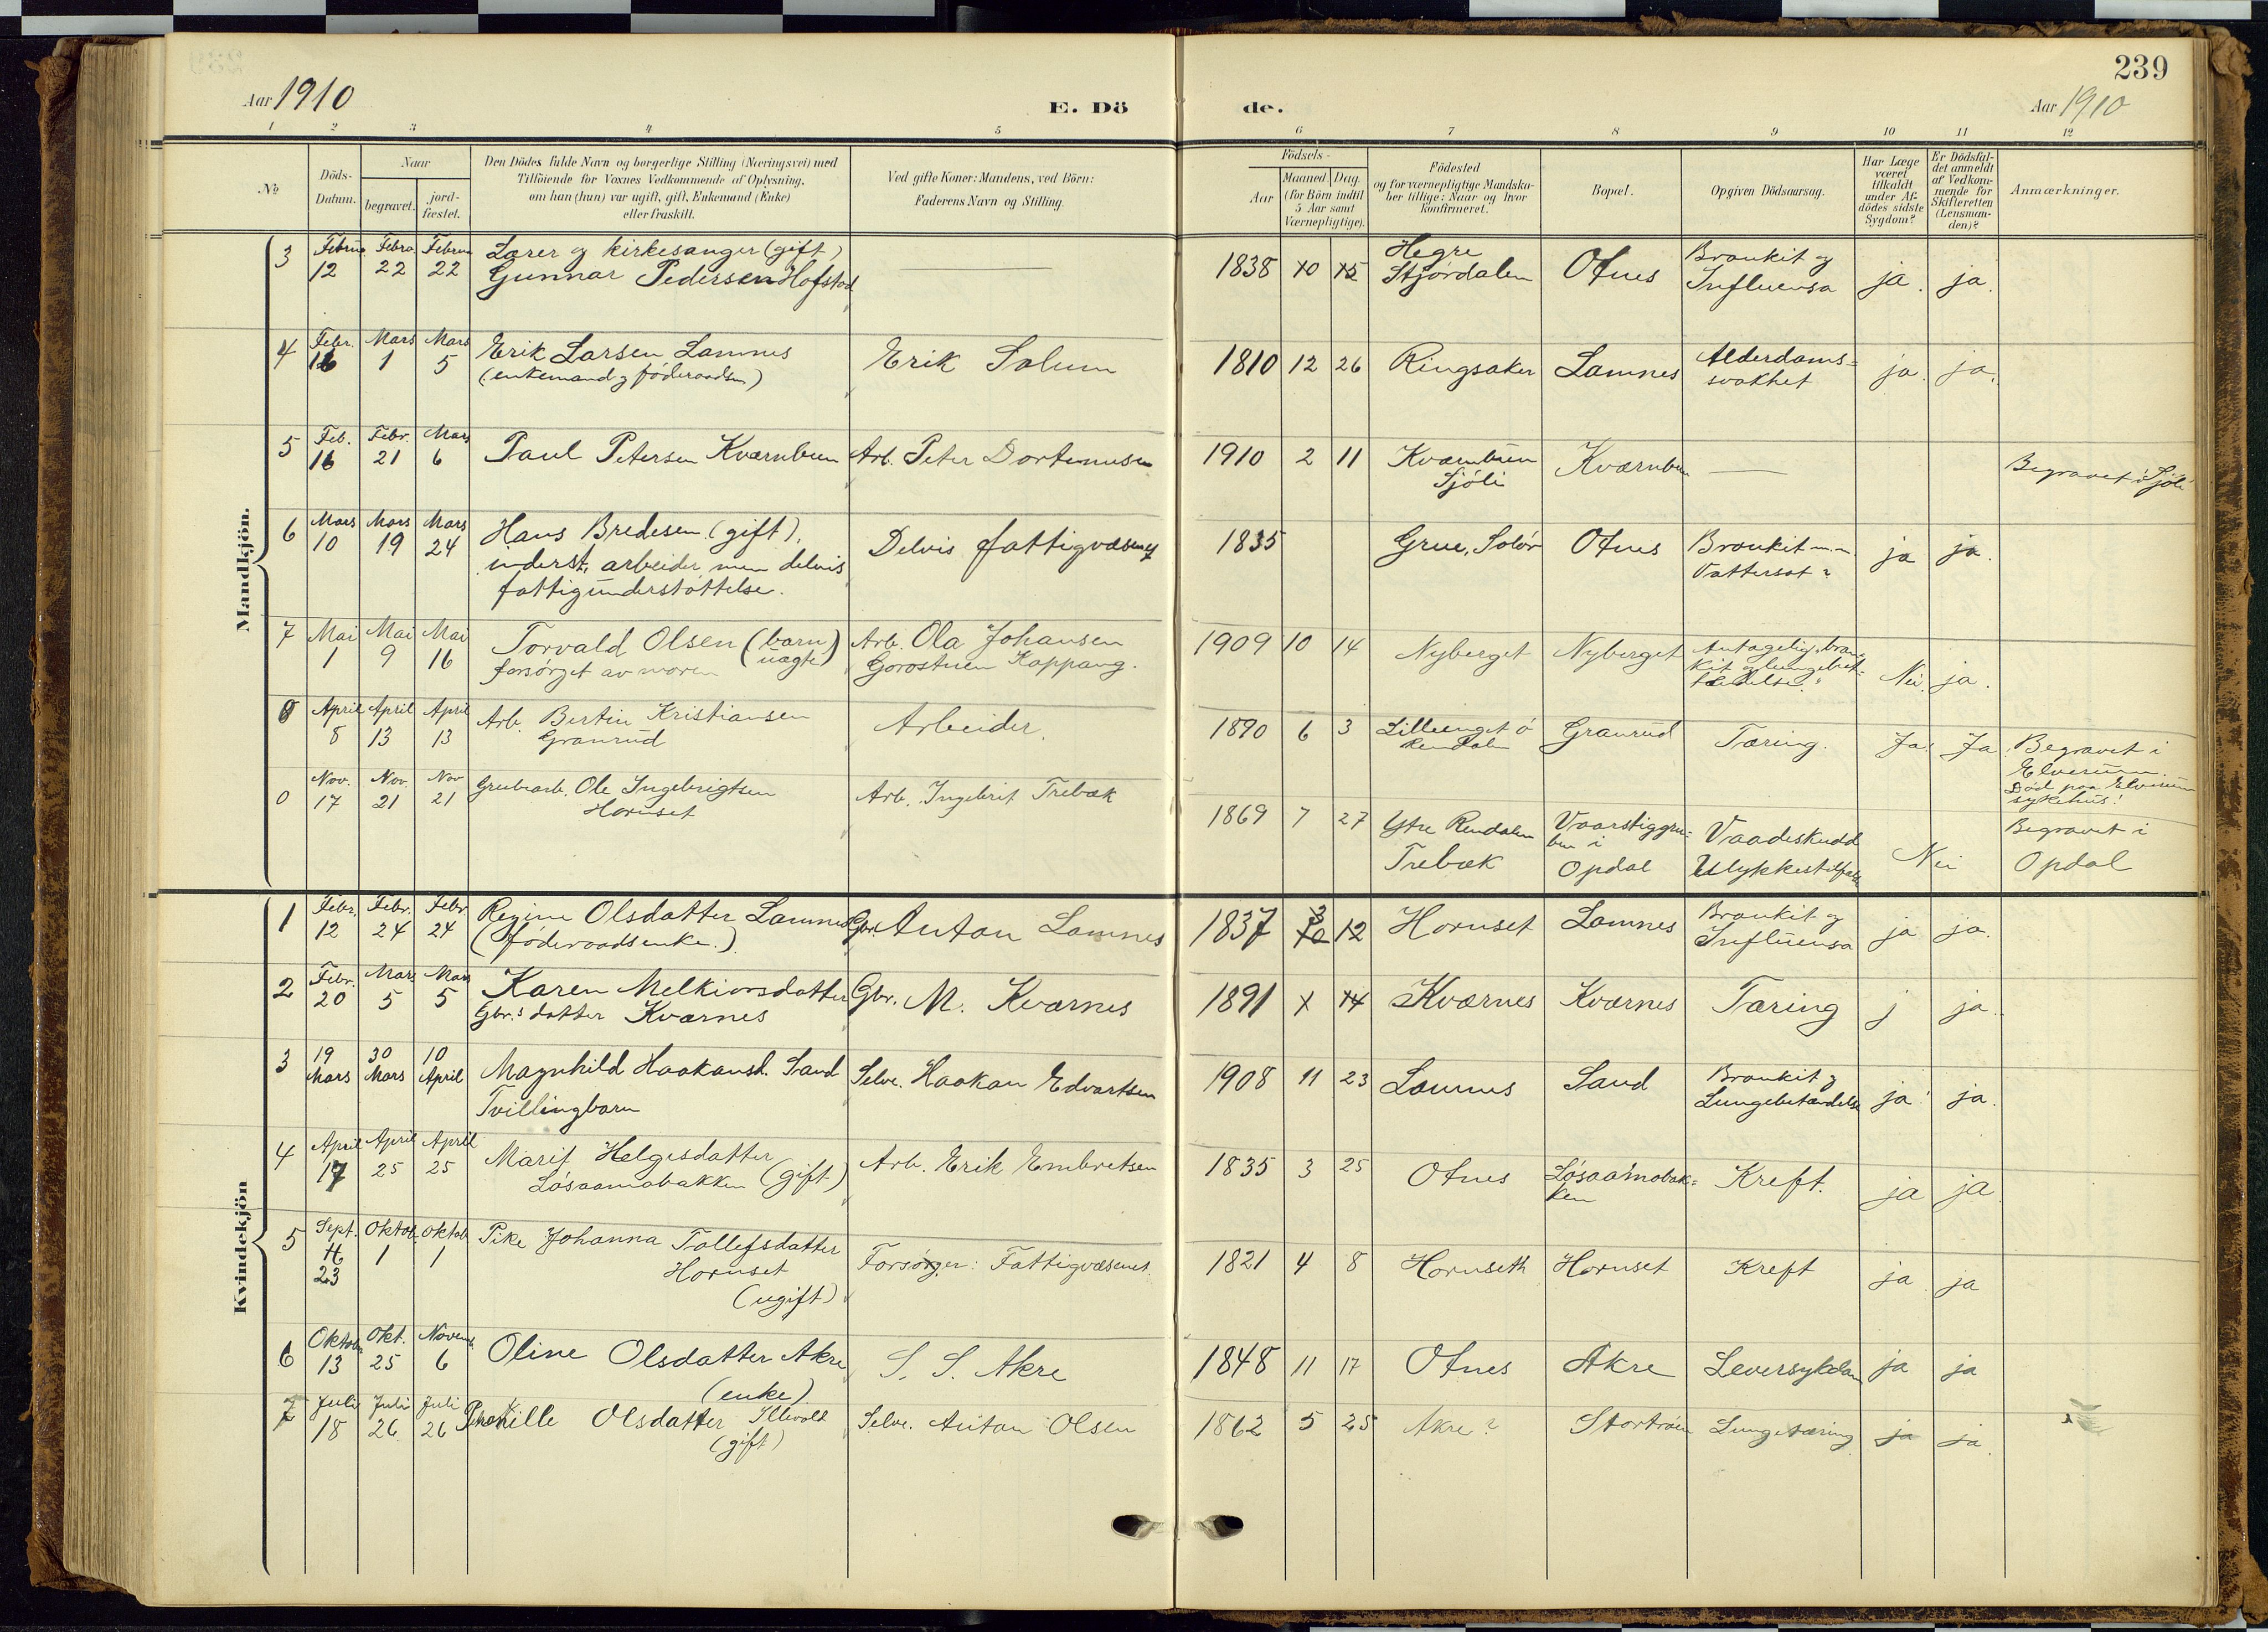 239
Aar 1910
E. Dö
de.
Aar 1910
1 2 3 4 5 6 7 8 9 10 11 12
No
Döds-
Datum.
Naar
begravet.
jord-
fæstet.
Den Dödes fulde Navn og borgerlige Stilling (Næringsvei) med
Tilföiende for Voxnes Vedkommende af Oplysning,
om han (hun) var ugift, gift, Enkemand (Enke)
eller fraskilt.
Ved gifte Koner: Mandens, ved Börn:
Faderens Navn og Stilling.
Födsels-
Aar
Maaned. Dag.
(for Börn indtil
5 Aar samt
Værnepligtige).
Födested
og for værnepligtige Mandska-
ber tillige: Naar og hvor
konfirmeret.
Bopæl.
Opgiven Dödsaarsag.
Har Læge
været
tilkaldt
under Af-
dödes sidste
Sygdom?
Er Dödsfal-
det anmeldt
af Vedkom-
mende for
Skifteretten
(Lensman-
den)?
Anmærkninger.
Mandkjön.
3 12 22 22
Lærer og kirkesanger (gift)
Gunnar Pedersen Hofstad
1838 10 15
Hegre
Stjørdalen
Otnes
Bronkit og
Influensa
ja. ja.
4 Febr. Mars Mars
16 1 5
Erik Larsen Lamnes
(enkemand og føderaadsm)
Erik Solum
1810 12 26 Ringsaker Lomnes
Alderdoms=
svakhet
ja. ja.
5 Feb. Febr. Mars
16 21 6
Paul Petersen Kværnbuen
Arb. Peter Dortemusen
1910 2 11
Kværnbuen
Sjøli
Kværnbuen
Begravet i Sjøli
6 Mars Mars Mars
10 19 24
Hans Bredesen (gift),
inderst, arbeider, men delvis
fattigunderstøttelse.
Delvis fattigvæsenet
1835 Grue, Solør Otnes
Bronkit m.m
Vattersot?
ja ja.
7 Mai Mai Mai
1 9 16
Torvald Olsen (barn)
(uægte)
forsørget av moren
Arb. Ola Johansen
Gorostuen Koppang.
1909 10 14 Nyberget Nyberget
Antagelig bron-
kit og lungebet-
tændelse.
Nei. ja.
8 April April April
8 13 13
Arb. Bertin Kristiansen
Granrud
Arbeider.
1890 6 3
Lilleenget ø
Rendalen
Granrud Tæring. Ja. Ja.
Begravet i
Elverum.
Død paa Elverum
sykehus!
0 Nov. Nov. Nov
17 21 21
Grubearb. Ole Ingebrigtsen
Hornset
Arb. Ingebrit Trebæk
1869 7 27
Ytre Rendalen
Trebæk
Vaarstiggru-
ben i
Opdal
Vaadeskudd
Ulykkestilfælde
Nei
Begravet i
Opdal
Kvindekjön
1 Febr. Febr. Febr.
12 24 24
Regine Olsdatter Lomnes
(føderaadsenke.)
Gbr. Anton Lomnes
1837 3 12 Hornset Lomnes
Bronkit og
Influensa
ja ja.
2 Febr. Mars Mars
20 5 5
Karen Melkiorsdatter
Gbr.s datter Kværnes
Gbr. M. Kværnes
1891 1 14 Kværnes Kværnes Tæring j ja.
3 19 30 10
Mars Mars April
Magnhild Haakansd. Sand
Tvillingbarn
Selve. Haakan Edvartsen
1908 11 23 Lomnes Sand
Bronkit og
Lungebetændelse
ja. ja.
4 April April April
17 25 25
Marit Helgesdatter
Løsaamobakken (gift)
Arb. Erik Embretsen
1835 3 25 Otnes
Løsaamobak=
ken
Kreft. ja ja.
5 Sept. Oktob. Oktob.
1 1
23
Pike Johanna Tollefsdatter
Hornset
(ugift)
Forsørger: Fattigvæsenet.
1821 4 8 Hornseth Hornset Kreft ja ja
6 Oktober Okt. Novemb.
13 25 6
Oline Olsdatter Akre
(enke)
S. S. Akre
1848 11 17 Otnes Akre Leversykdom ja ja
7 Juli Juli Juli
18 26 26
Pernille Olsdatter
(gift)
Selve. Anton Olsen
1862 5 25 Akre? Stortrøen Lungetæring ja ja.